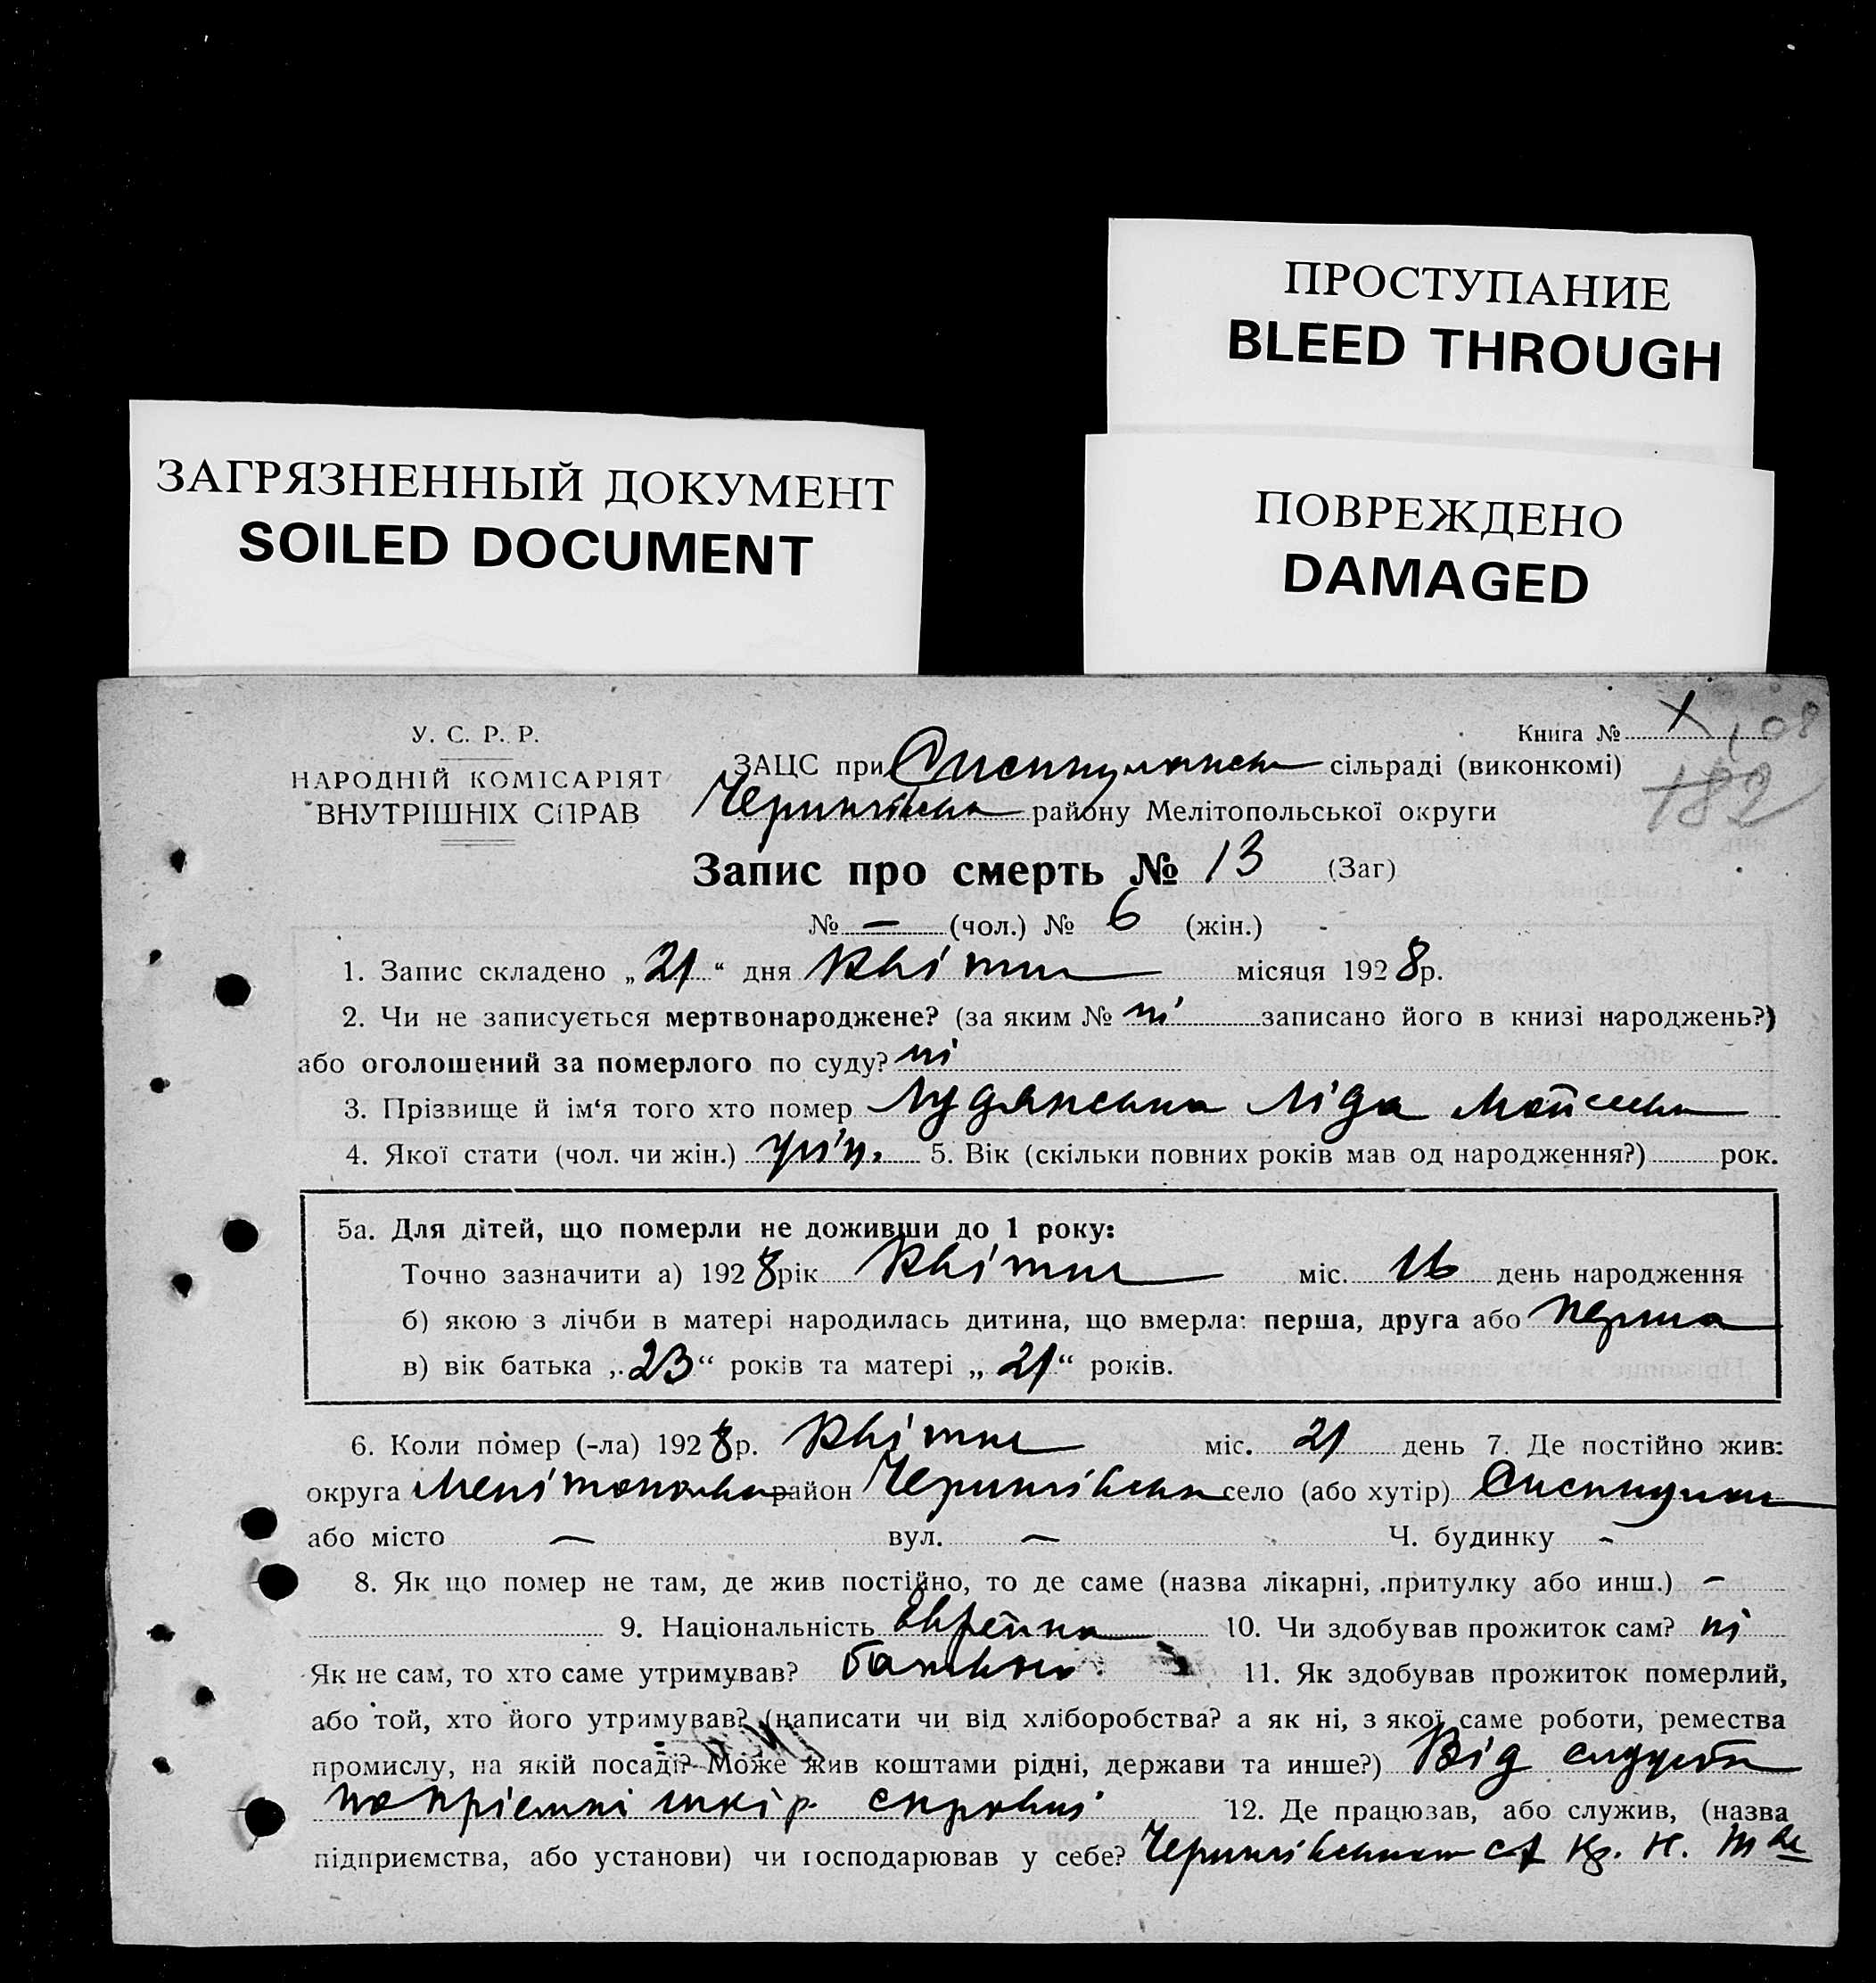 ПРОСТУПАНИЕ
BLEED THROUGH
ЗАГРЯЗНЕННЫЙ ДОКУМЕНТ
SOILED DOCUMENT
ПОВРЕЖДЕНО
DAMAGED
У. С. Р. Р.
НАРОДНІЙ КОМІСАРІЯТ
ВНУТРІШНІХ СПРАВ
Книга № 1
108
182
ЗАЦС при сільраді (виконкомі)
району Мелітопольської округи
Запис про смерть № 13 (Заг)
№ — (чол.) № 6 (жін.)
1. Запис складено „21“ дня Квітня місяця 1928р.
2. Чи не записується мертвонароджене? (за яким № ні записано його в книзі народжень?)
або оголошений за померлого по суду? ні
3. Прізвище й ім‘я того хто помер Лудянська Ліда Мойсеевн
4. Якої стати (чол. чи жін.) жін. 5. Вік (скільки повних років мав од народження?) рок.
5а. Для дітей, що померли не доживши до 1 року:
Точно зазначити а) 1928рік Квітня міс. 16 день народження
б) якою з лічби в матері народилась дитина, що вмерла: перша, друга або перша
в) вік батька „23“ років та матері „21“ років.
6. Коли помер (-ла) 1928р. Квітня міс. 21 день 7. Де постійно жив:
округа район село (або хутір)
або місто — вул. — Ч. будинку -
8. Як що помер не там, де жив постійно, то де саме (назва лікарні, притулку або инш.) -
9. Національність Еврейка 10. Чи здобував прожиток сам? ні
Як не сам, то хто саме утримував? батько 11. Як здобував прожиток померлий,
або той, хто його утримував? (написати чи від хліборобства? а як ні, з якої саме роботи, ремества
промислу, на якій посаді? Може жив коштами рідні, держави та инше?) Від служби
по приємні шкір
12. Де працював, або служив, (назва
підприємства, або установи) чи господарював у себе?